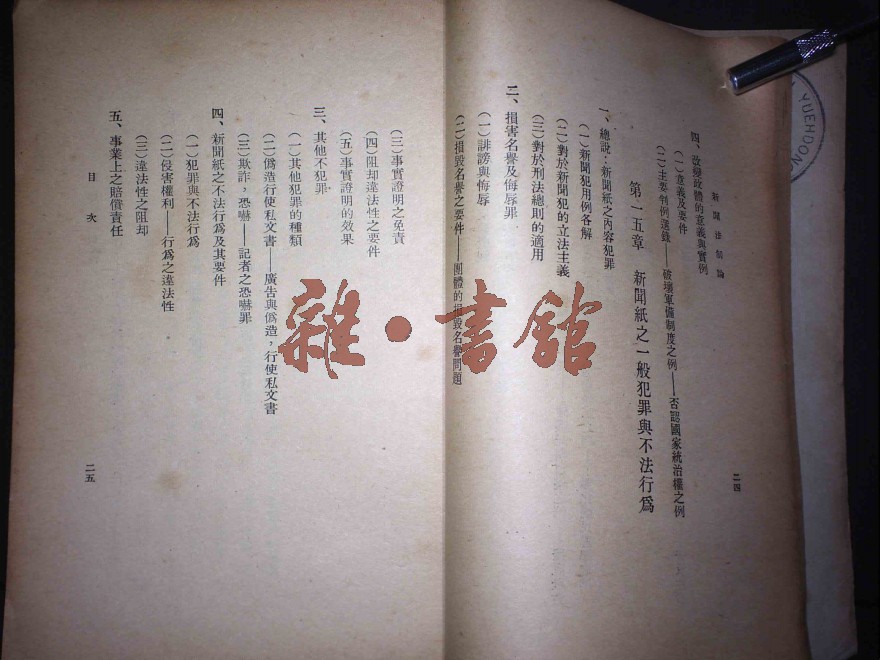 新聞法制論
二四
四、改變政體的意義與實例
(一)意義及要件
(二)主要判例選錄——破壞軍備制度之例——否認國家統治權之例
第一五章 新聞紙之一般犯罪與不法行爲
一、總說：新聞紙之內容犯罪
(一)新聞犯用例各解
(二)對於新聞犯的立法主義
(三)對於刑法總則的適用
二、損害名譽及侮辱罪
(一)誹謗與侮辱
(二)損毀名譽之要件——團體的損毀名譽問題
(三)事實證明之免責
(四)阻却違法性之要件
(五)事實證明的效果
三、其他不犯罪
(一)其他犯罪的種類
(二)僞造行使私文書——廣告與僞造，行使私文書
(三)欺詐，恐嚇——記者之恐嚇罪
四、新聞紙之不法行爲及其要件
(一)犯罪與不法行爲
(二)侵害權利——行爲之違法性
(三)違法性之阻却
五、事業上之賠償責任
目次
二五
雜·書館
YUEHDONG